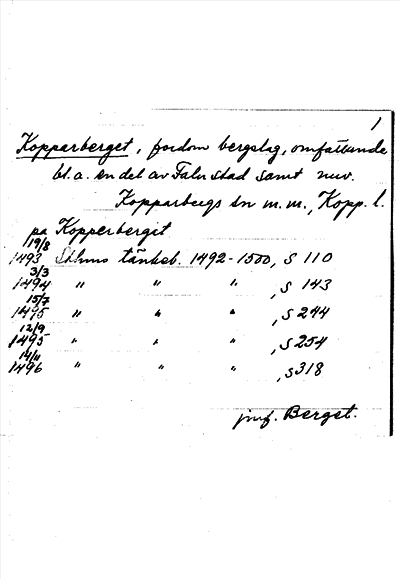 1
Kopparberget, fordom bergslag, omfattande
bl. a. en del av Falu stad samt nuv.
Kopparbergs sn m. m., Kopp. l.
pa Kopperberget
19/8
1493 Sthms tänkeb. 1492-1500, S 110
3/3
1494 " " " , S 143
15/7
1495 " " " , S 244
12/9
1495 " " " , S 254
14/11
1496 " " " , S 318
jmf. Berget.